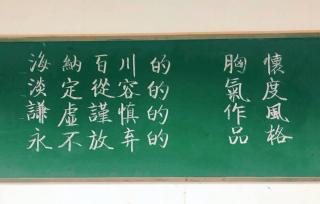 海納百川的 胸懷
淡定從容的 氣度
謙虛謹慎的 作風
永不放弃的 品格